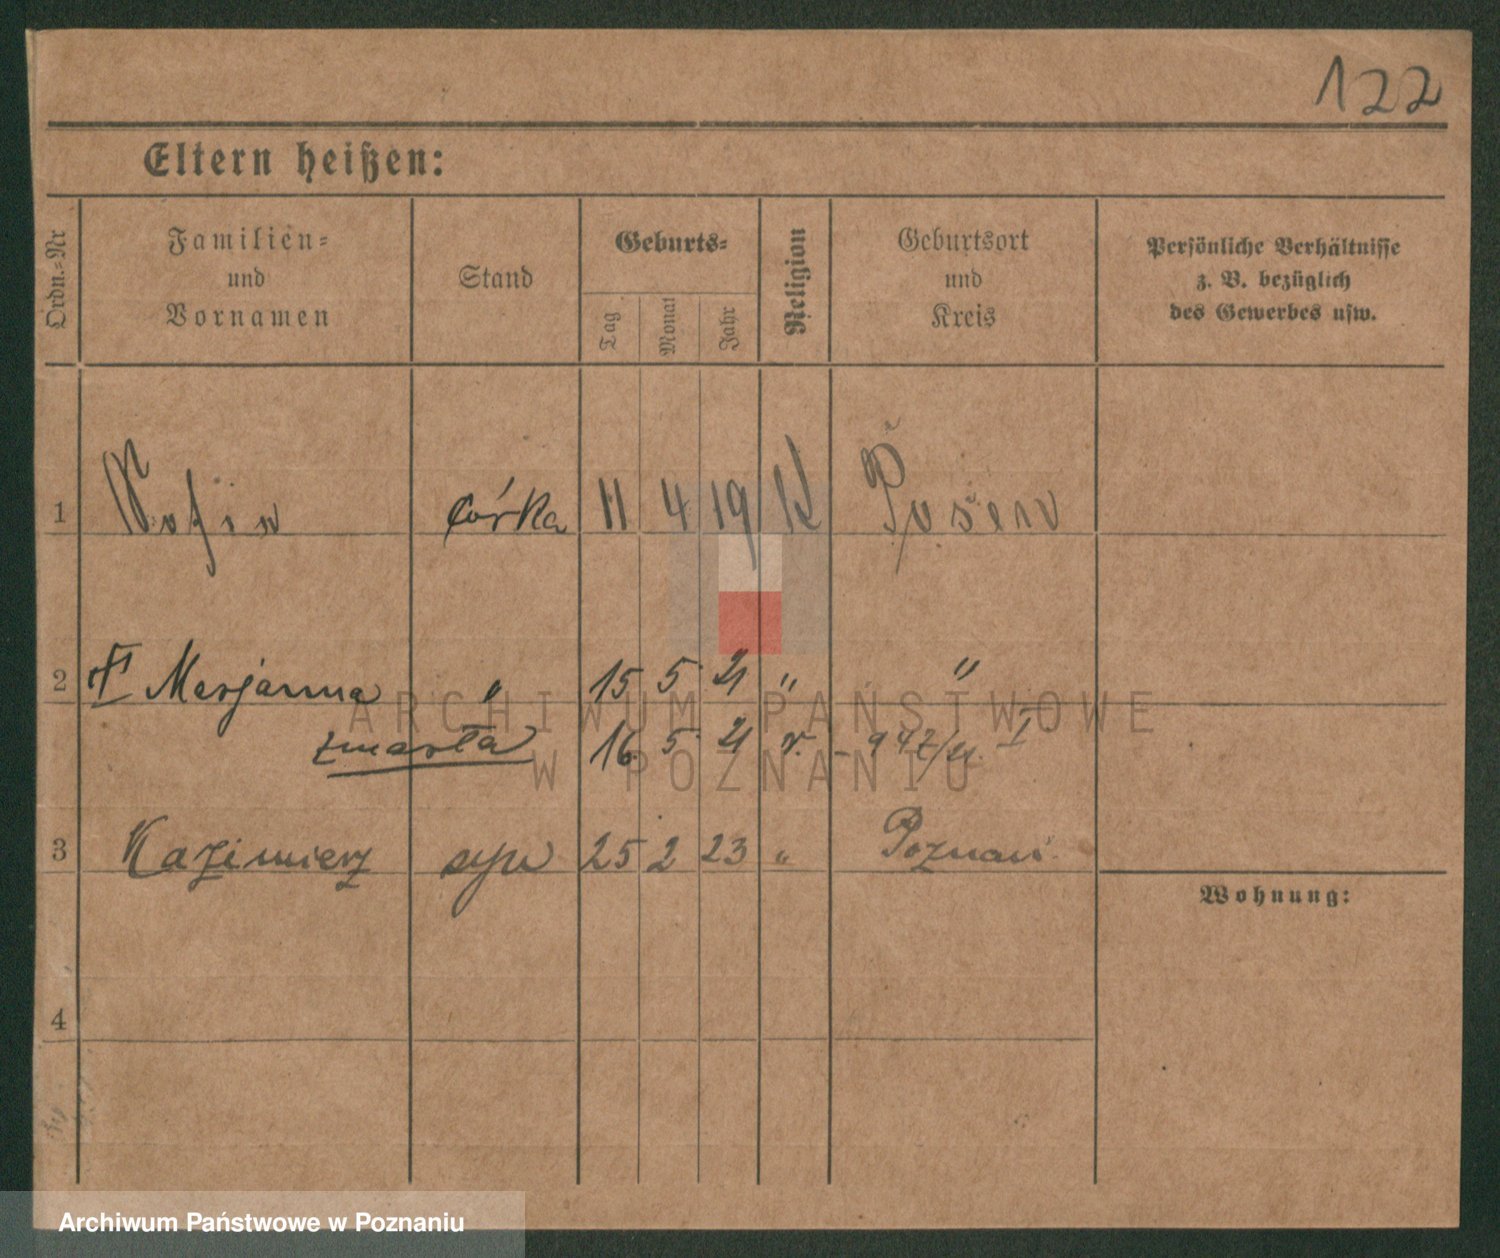 122
Eltern heißen:
Ordn.-Nr
Familien-
und
Vornamen
Stand
Geburts-
Tag
Monat
Jahr
Religion
Geburtsort
und
Kreis
Persönliche Verhältnisse
z. B. bezüglich
des Gewerbes usw.
1 córka 11 4 19 K Posen
2 Marjanna " 15 5 21 " "
zmarła 16 5 21 r. - 947/21 I
3 Kazimierz syn 25 2 23 " Poznań
Wohnung:
4
ARCHIWUM PAŃSTWOWE
W POZNANIU
Archiwum Państwowe w Poznaniu